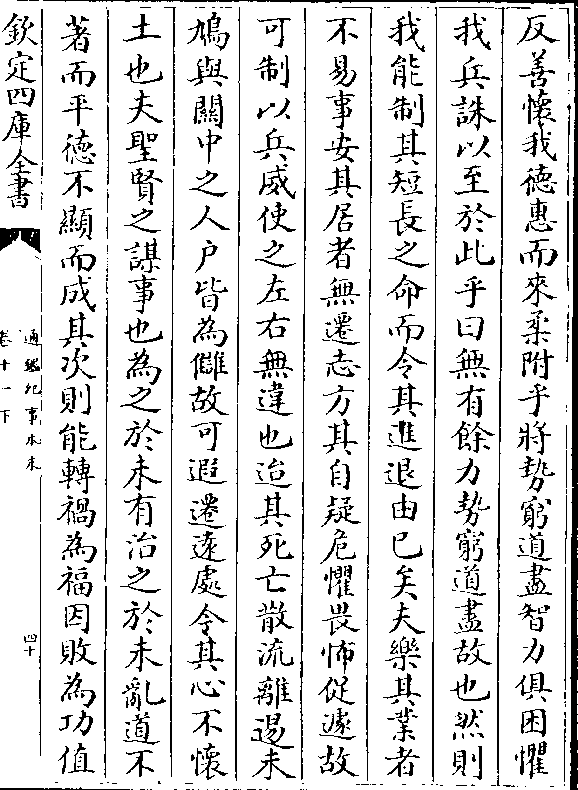 反善懷我德惠而來柔附乎將勢窮道盡智力俱困懼
我兵誅以至於此乎曰無有餘力勢窮道盡故也然則
我能制其短長之命而令其進退由已矣夫樂其業者
不易事安其居者無遷志方其自疑危懼畏怖促遽故
可制以兵威使之左右無違也迨其死亡散流離逷未
鳩與關中之人户皆為讎故可遐遷逺處令其心不懷
土也夫聖賢之謀事也為之於未有治之於未亂道不
著而平德不顯而成其次則能轉禍為福因敗為功值
欽定四庫全書
通鑑紀事本末
卷十一下
四十